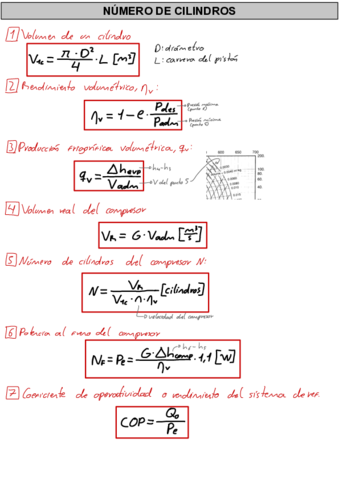 NÚMERO DE CILINDROS
1 Volumen de un cilindro
V_tc = π · D² / 4 · L [m³]
D: diámetro
L: carrera del pistón
2 Rendimiento volumétrico, η_v:
η_v = 1 - e · P_des / P_adm
Presión máxima
(punto 6)
Presión mínima
3 Producción frigorífica volumétrica, q_v:
q_v = Δh_evp / V_adm
V del punto 5
4 Volumen real del compresor
V_R = G · V_adm [m³/s]
5 Número de cilindros del compresor N:
N = V_R / V_tc · n · η_v [cilindros]
velocidad del compresor
6 Potencia al freno del compresor
N_F = P_e = G · Δh_comp / η_v · 1,1 [W]
7 Coeficiente de operatividad o rendimiento del sistema de ref.
COP = Q_o / P_e